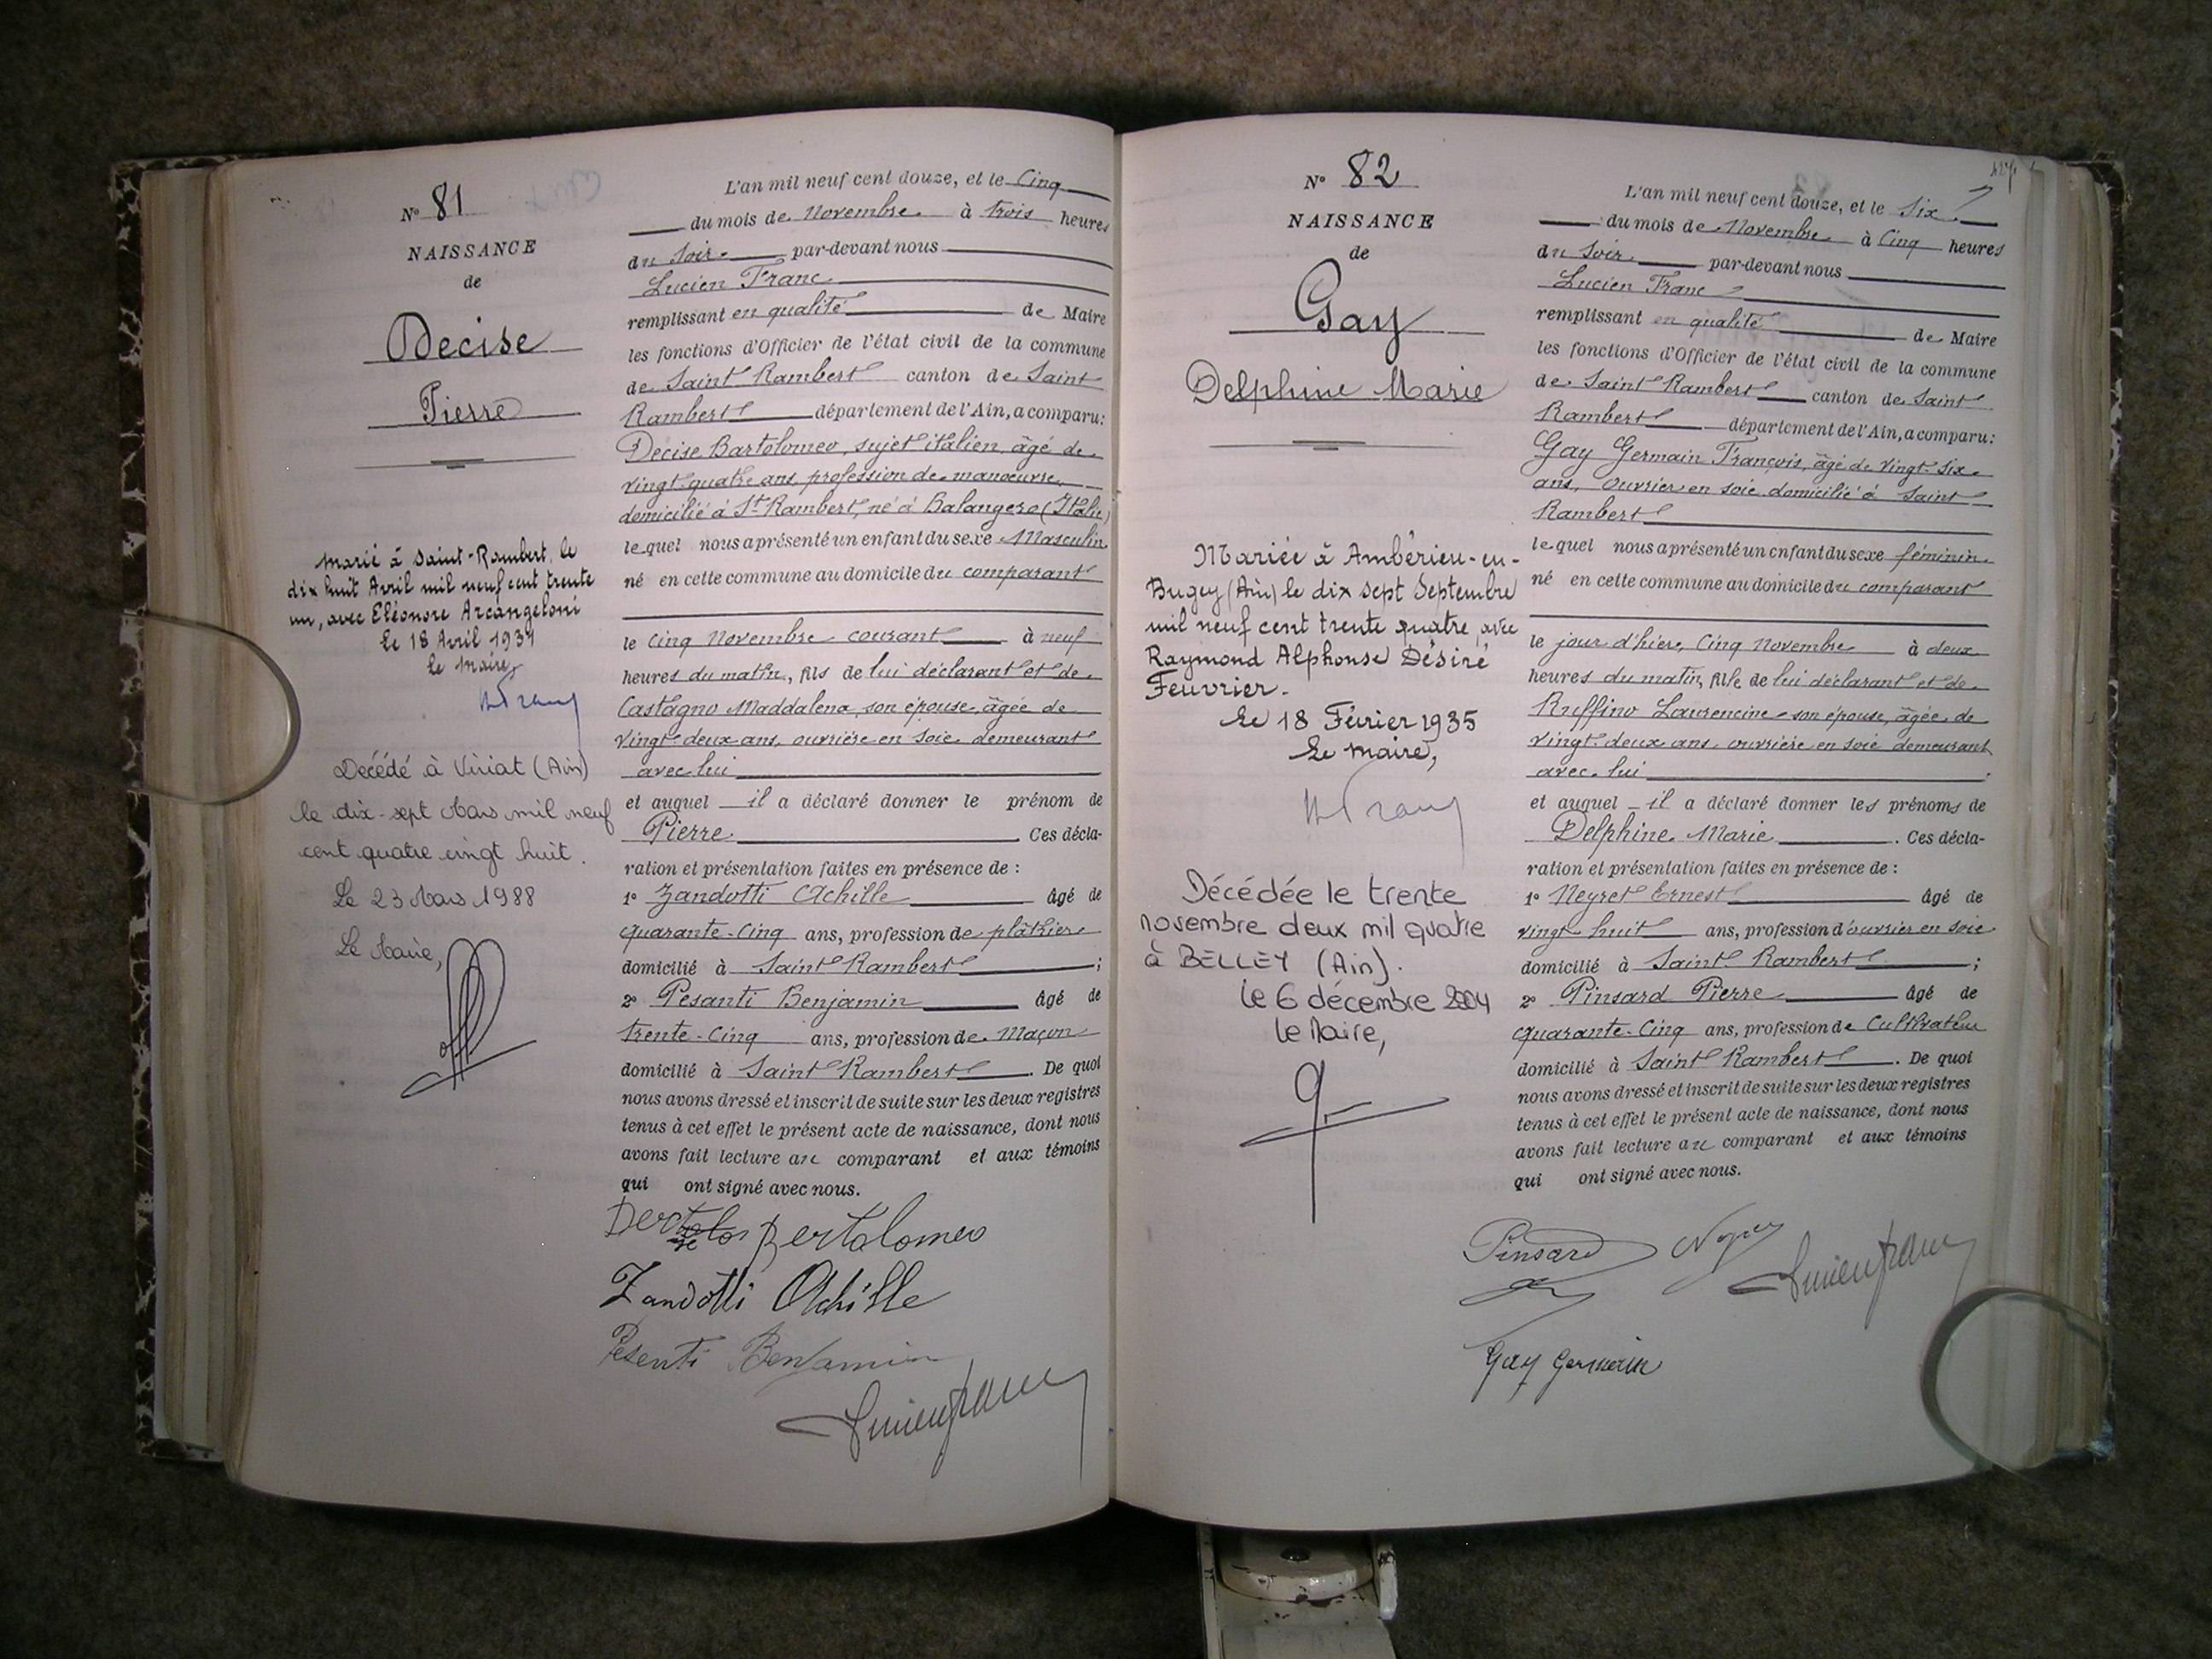 N° 81
NAISSANCE
de
Decise
Pierre
marié à Saint-Rambert, le
dix huit Avril mil neuf cent trente
un, avec Eléonore Arcangeloni
Le 18 Avril 1931
Le Maire,
Décédé à Viriat (Ain)
le dix-sept Mars mil neuf
cent quatre vingt huit.
Le 23 Mars 1988
Le Maire,
L'an mil neuf cent douze, et le Cinq
du mois de Novembre à trois heures
du soir par-devant nous
Lucien Franc
remplissant en qualité de Maire
les fonctions d'Officier de l'état civil de la commune
de Saint Rambert canton de Saint
Rambert département de l'Ain, a comparu:
Decise Bartolomeo, sujet italien, âgé de
vingt quatre ans, profession de manoeuvre
domicilié à St Rambert, né à Balangero (Italie)
lequel nous a présenté un enfant du sexe Masculin
né en cette commune au domicile du comparant
le cinq Novembre courant à neuf
heures du matin, fils de lui déclarant et de
Castagno Maddalena, son épouse, âgée de
vingt-deux ans, ouvrière en soie demeurant
avec lui
et auquel il a déclaré donner le prénom de
Pierre Ces décla-
ration et présentation faites en présence de :
1° Zandotti Achille âgé de
quarante-cinq ans, profession de plâtrier
domicilié à Saint Rambert ;
2° Pesanti Benjamin âgé de
trente-cinq ans, profession de Maçon
domicilié à Saint Rambert . De quoi
nous avons dressé et inscrit de suite sur les deux registres
tenus à cet effet le présent acte de naissance, dont nous
avons fait lecture au comparant et aux témoins
qui ont signé avec nous.
Bertolomeo
Zandotti Achille
Pesenti Benjamin
Lucien Franc
N° 82
NAISSANCE
de
Gay
Delphine Marie
Mariée à Ambérieu-en-
Bugey (Ain) le dix sept Septembre
mil neuf cent trente quatre, avec
Raymond Alphonse Désiré
Feuvrier.
Le 18 Février 1935
Le Maire,
Décédée le trente
novembre deux mil quatre
à BELLEY (Ain).
le 6 décembre 2004
le Maire,
L'an mil neuf cent douze, et le Six
du mois de Novembre à Cinq heures
du soir par-devant nous
Lucien Franc
remplissant en qualité de Maire
les fonctions d'Officier de l'état civil de la commune
de Saint Rambert canton de Saint
Rambert département de l'Ain, a comparu:
Gay Germain François, âgé de vingt-six
ans, ouvrier en soie domicilié à Saint
Rambert
lequel nous a présenté un enfant du sexe féminin
né en cette commune au domicile du comparant
le jour d'hier, Cinq Novembre à deux
heures du matin, fille de lui déclarant et de
Ruffino Laurencine son épouse, âgée de
vingt-deux ans, ouvrière en soie demeurant
avec lui
et auquel il a déclaré donner les prénoms de
Delphine Marie . Ces décla-
ration et présentation faites en présence de :
1° Neyret Ernest âgé de
vingt-huit ans, profession d'ouvrier en soie
domicilié à Saint Rambert ;
2° Pinsard Pierre âgé de
quarante-cinq ans, profession de Cultivateur
domicilié à Saint Rambert . De quoi
nous avons dressé et inscrit de suite sur les deux registres
tenus à cet effet le présent acte de naissance, dont nous
avons fait lecture au comparant et aux témoins
qui ont signé avec nous.
Pinsard
Lucien Franc
Gay Germain